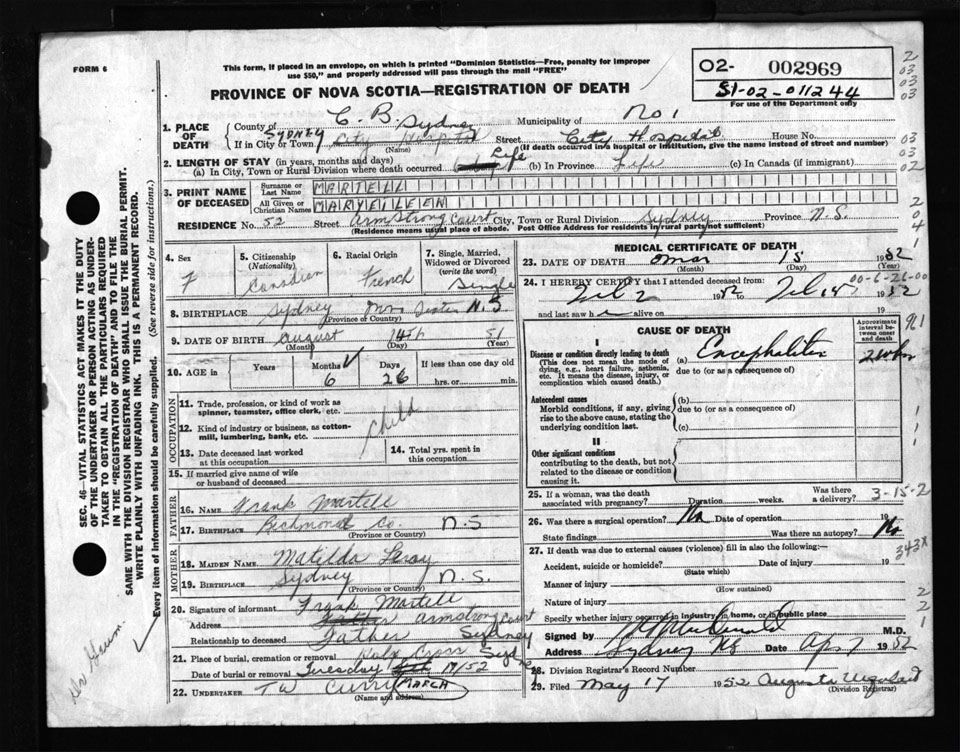 FORM 6
This form, if placed in an envelope, on which is printed "Dominion Statistics—Free, penalty for improper
use $50," and properly addressed will pass through the mail "FREE"
PROVINCE OF NOVA SCOTIA—REGISTRATION OF DEATH
02- 002969
S1-02-011244
For use of the Department only
2
03
03
03
03
02
2
0
4
1
1. PLACE OF DEATH
County of C. B. Sydney Municipality of No 1
If in City or Town SYDNEY City Hospital Street City Hospital House No.
(Name) (If death occurred in a hospital or institution, give the name instead of street and number)
2. LENGTH OF STAY (in years, months and days)
(a) In City, Town or Rural Division where death occurred Life (b) In Province Life (c) In Canada (if immigrant)
3. PRINT NAME OF DECEASED
Surname or Last Name MARTELL
All Given or Christian Names MARYEILEEN
RESIDENCE No. 52 Street Armstrong Court City, Town or Rural Division Sydney Province N.S.
(Residence means usual place of abode. Post Office Address for residents in rural parts not sufficient)
4. Sex F
5. Citizenship (Nationality) Canadian
6. Racial Origin French
7. Single, Married, Widowed or Divorced (write the word) Single
8. BIRTHPLACE Sydney N.S
(Province or Country)
9. DATE OF BIRTH August 14th 51
(Month) (Day) (Year)
10. AGE in Years Months Days If less than one day old
6 26 hrs. or min.
OCCUPATION
11. Trade, profession, or kind of work as spinner, teamster, office clerk, etc.
12. Kind of industry or business, as cotton-mill, lumbering, bank, etc.
Child
13. Date deceased last worked at this occupation
14. Total yrs. spent in this occupation
15. If married give name of wife or husband of deceased
FATHER
16. NAME Frank Martell
17. BIRTHPLACE Richmond Co. N.S
(Province or Country)
MOTHER
18. MAIDEN NAME Matilda
19. BIRTHPLACE Sydney N.S.
(Province or Country)
20. Signature of informant Frank Martell
Address Armstrong Court
Relationship to deceased Father Sydney
21. Place of burial, cremation or removal Holy Cross Syd
Date of burial or removal Tuesday 52
22. UNDERTAKER T W Curry
(Name and address)
MEDICAL CERTIFICATE OF DEATH
23. DATE OF DEATH Mar 15 1952
(Month) (Day) (Year)
00-6-26-00
24. I HEREBY CERTIFY that I attended deceased from:
Feb 2 1952 to Feb 15 1952
and last saw h alive on 19
CAUSE OF DEATH
Approximate interval between onset and death
I
Disease or condition directly leading to death
(This does not mean the mode of dying, e.g., heart failure, asthenia, etc. It means the disease, injury, or complication which caused death.)
(a) Encephalitis
due to (or as a consequence of)
Antecedent causes
Morbid conditions, if any, giving rise to the above cause, stating the underlying condition last.
(b)
due to (or as a consequence of)
(c)
II
Other significant conditions
contributing to the death, but not related to the disease or condition causing it.
25. If a woman, was the death associated with pregnancy? Duration weeks. Was there a delivery? 3-15-2
26. Was there a surgical operation? No Date of operation 19
State findings Was there an autopsy? No
27. If death was due to external causes (violence) fill in also the following:—
343X
Accident, suicide or homicide? Date of injury 19
(State which)
Manner of injury
(How sustained)
Nature of injury
Specify whether injury occurred in industry, in home, or in public place
Signed by M.D.
Address Sydney NS Date Apr 7 1952
28. Division Registrar's Record Number
29. Filed May 17 1952 Augusta Urquhart
(Division Registrar)
SEC. 46—VITAL STATISTICS ACT MAKES IT THE DUTY
OF THE UNDERTAKER OR PERSON ACTING AS UNDER-
TAKER TO OBTAIN ALL THE PARTICULARS REQUIRED
IN THE "REGISTRATION OF DEATH" AND TO FILE THE
SAME WITH THE DIVISION REGISTRAR WHO SHALL ISSUE THE BURIAL PERMIT.
WRITE PLAINLY WITH UNFADING INK. THIS IS A PERMANENT RECORD.
Every item of information should be carefully supplied. (See reverse side for instructions.)